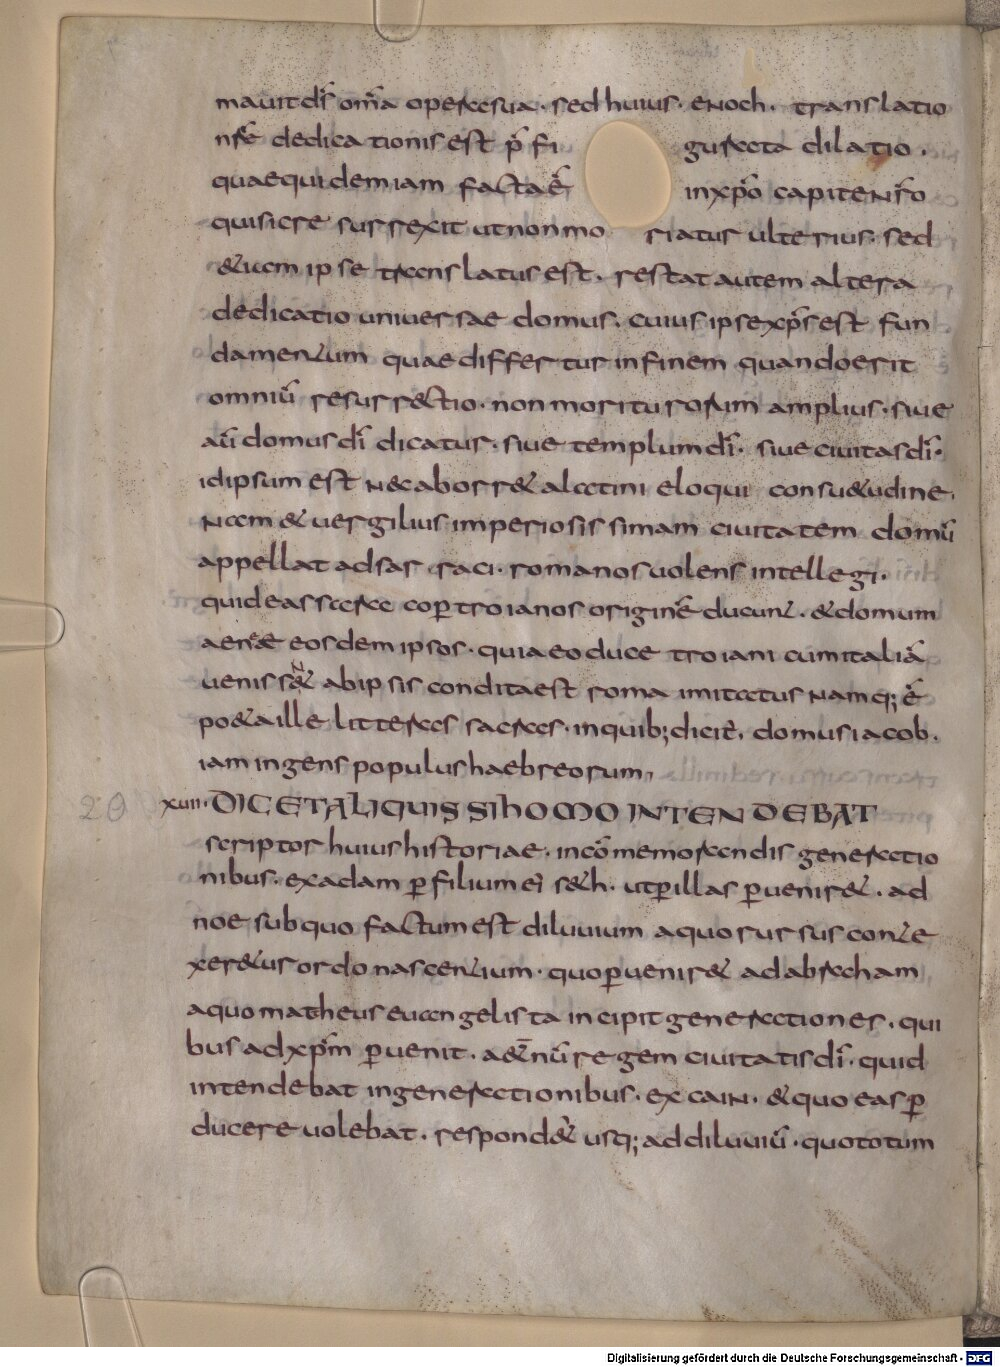 mauit dſ om̄a opera sua · sed huius · enoch · translatio
nr̄e dedicationis est p̄ fi gurata dilatio ·
quae quidem iam facta ē in xp̄o capite nr̄o
qui sic resurrexit ut non mo riatur ulterius · sed
& iam ipse translatus est · restat autem altera
dedicatio uniuersae domus · cuius ipse xp̄s est fun
damentum quae differtur in finem quando erit
omniū resurrectio · non moriturorum amplius · siue
aū domus dī dicatur · siue templum dī · siue ciuitas dī ·
id ipsum est nec abhorr& a latini eloqui consu&udine ·
Nam & uergilius imperiosissimam ciuitatem domū
appellat adsaraci · romanos uolens intellegi ·
qui de assaraco p̱ troianos originē ducunt · & domum
aeneae eosdem ipsos · quia eo duce troiani cum italiā
uenissent ab ipsis condita est roma imitatus namq; ē
po&a ille litteras sacras · in quib; dicit̄ · domus iacob ·
iam ingens populus haebreorum,
20 xuiii · DICET ALIQUIS SI hOC MODO INTENDEBAT
scriptor huius historiae · in cōmemorandis generatio
nibus · ex adam p̱ filium ei s&h · ut p̱ illas p̱uenir& · ad
noe sub quo factum est diluuium a quo rursus conte
xer&ur ordo nascentium · quo p̱uenir& ad abraham
a quo matheus euangelista incipit generationes · qui
bus ad xp̄m p̱uenit · a&̄nū regem ciuitatis dī · quid
intendebat in generationibus · ex cain · & quo eas p̱
ducere uolebat · respond&̄ usq; ad diluuiū · quo totum
Digitalisierung gefördert durch die Deutsche Forschungsgemeinschaft - DFG